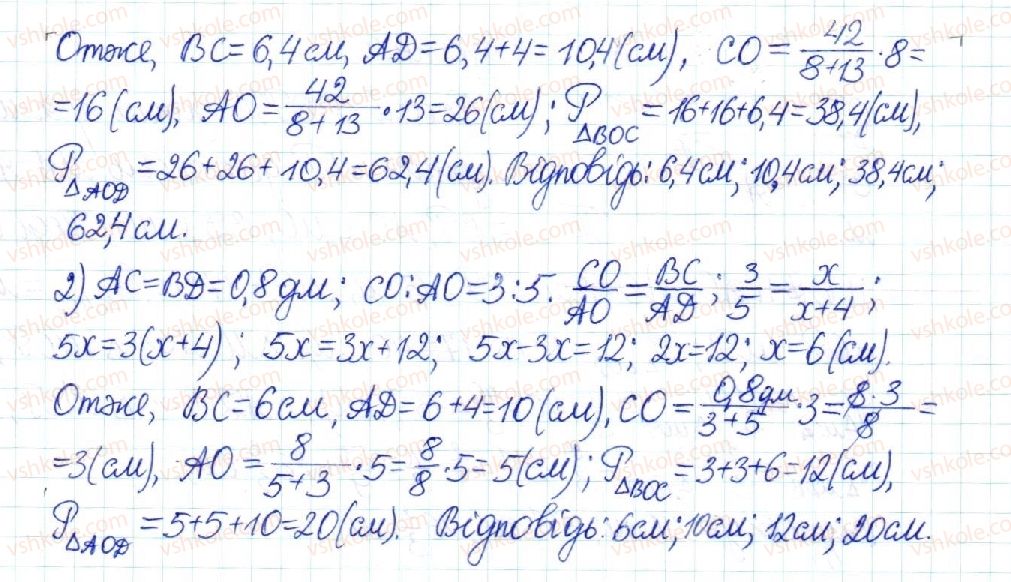 Отже, BC = 6,4 см, AD = 6,4 + 4 = 10,4 (см), CO = 42/(8+13) · 8 =
= 16 (см), AO = 42/(8+13) · 13 = 26 (см); P△BOC = 16 + 16 + 6,4 = 38,4 (см),
P△AOD = 26 + 26 + 10,4 = 62,4 (см). Відповідь: 6,4 см; 10,4 см; 38,4 см;
62,4 см.
2) AC = BD = 0,8 дм; CO : AO = 3 : 5. CO/AO = BC/AD; 3/5 = x/(x+4);
5x = 3(x+4); 5x = 3x + 12; 5x - 3x = 12; 2x = 12; x = 6 (см).
Отже, BC = 6 см, AD = 6 + 4 = 10 (см), CO = 0,8 дм/(3+5) · 3 = 8·3/8 =
= 3 (см), AO = 8/(5+3) · 5 = 8/8 · 5 = 5 (см); P△BOC = 3 + 3 + 6 = 12 (см),
P△AOD = 5 + 5 + 10 = 20 (см). Відповідь: 6 см; 10 см; 12 см; 20 см.